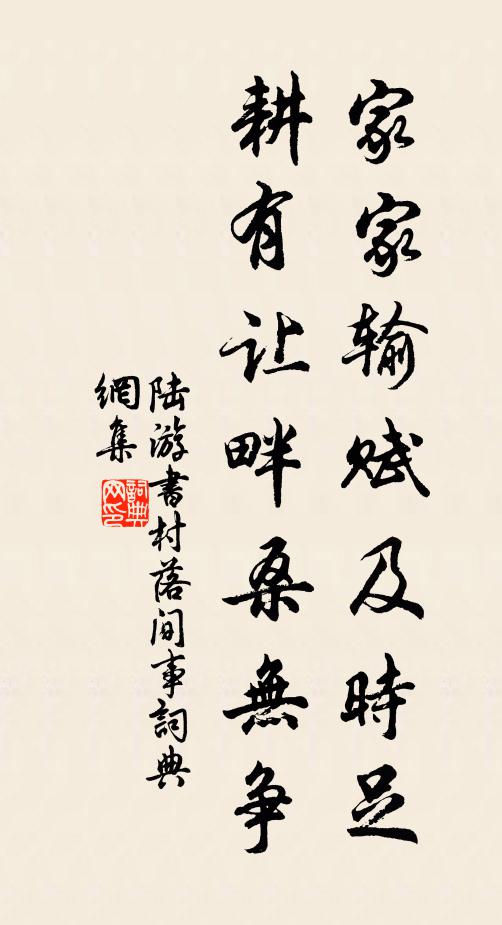 家家输赋及時足
耕有让畔桑無争
陆游書村落间事詞典
網集
詞典
网印